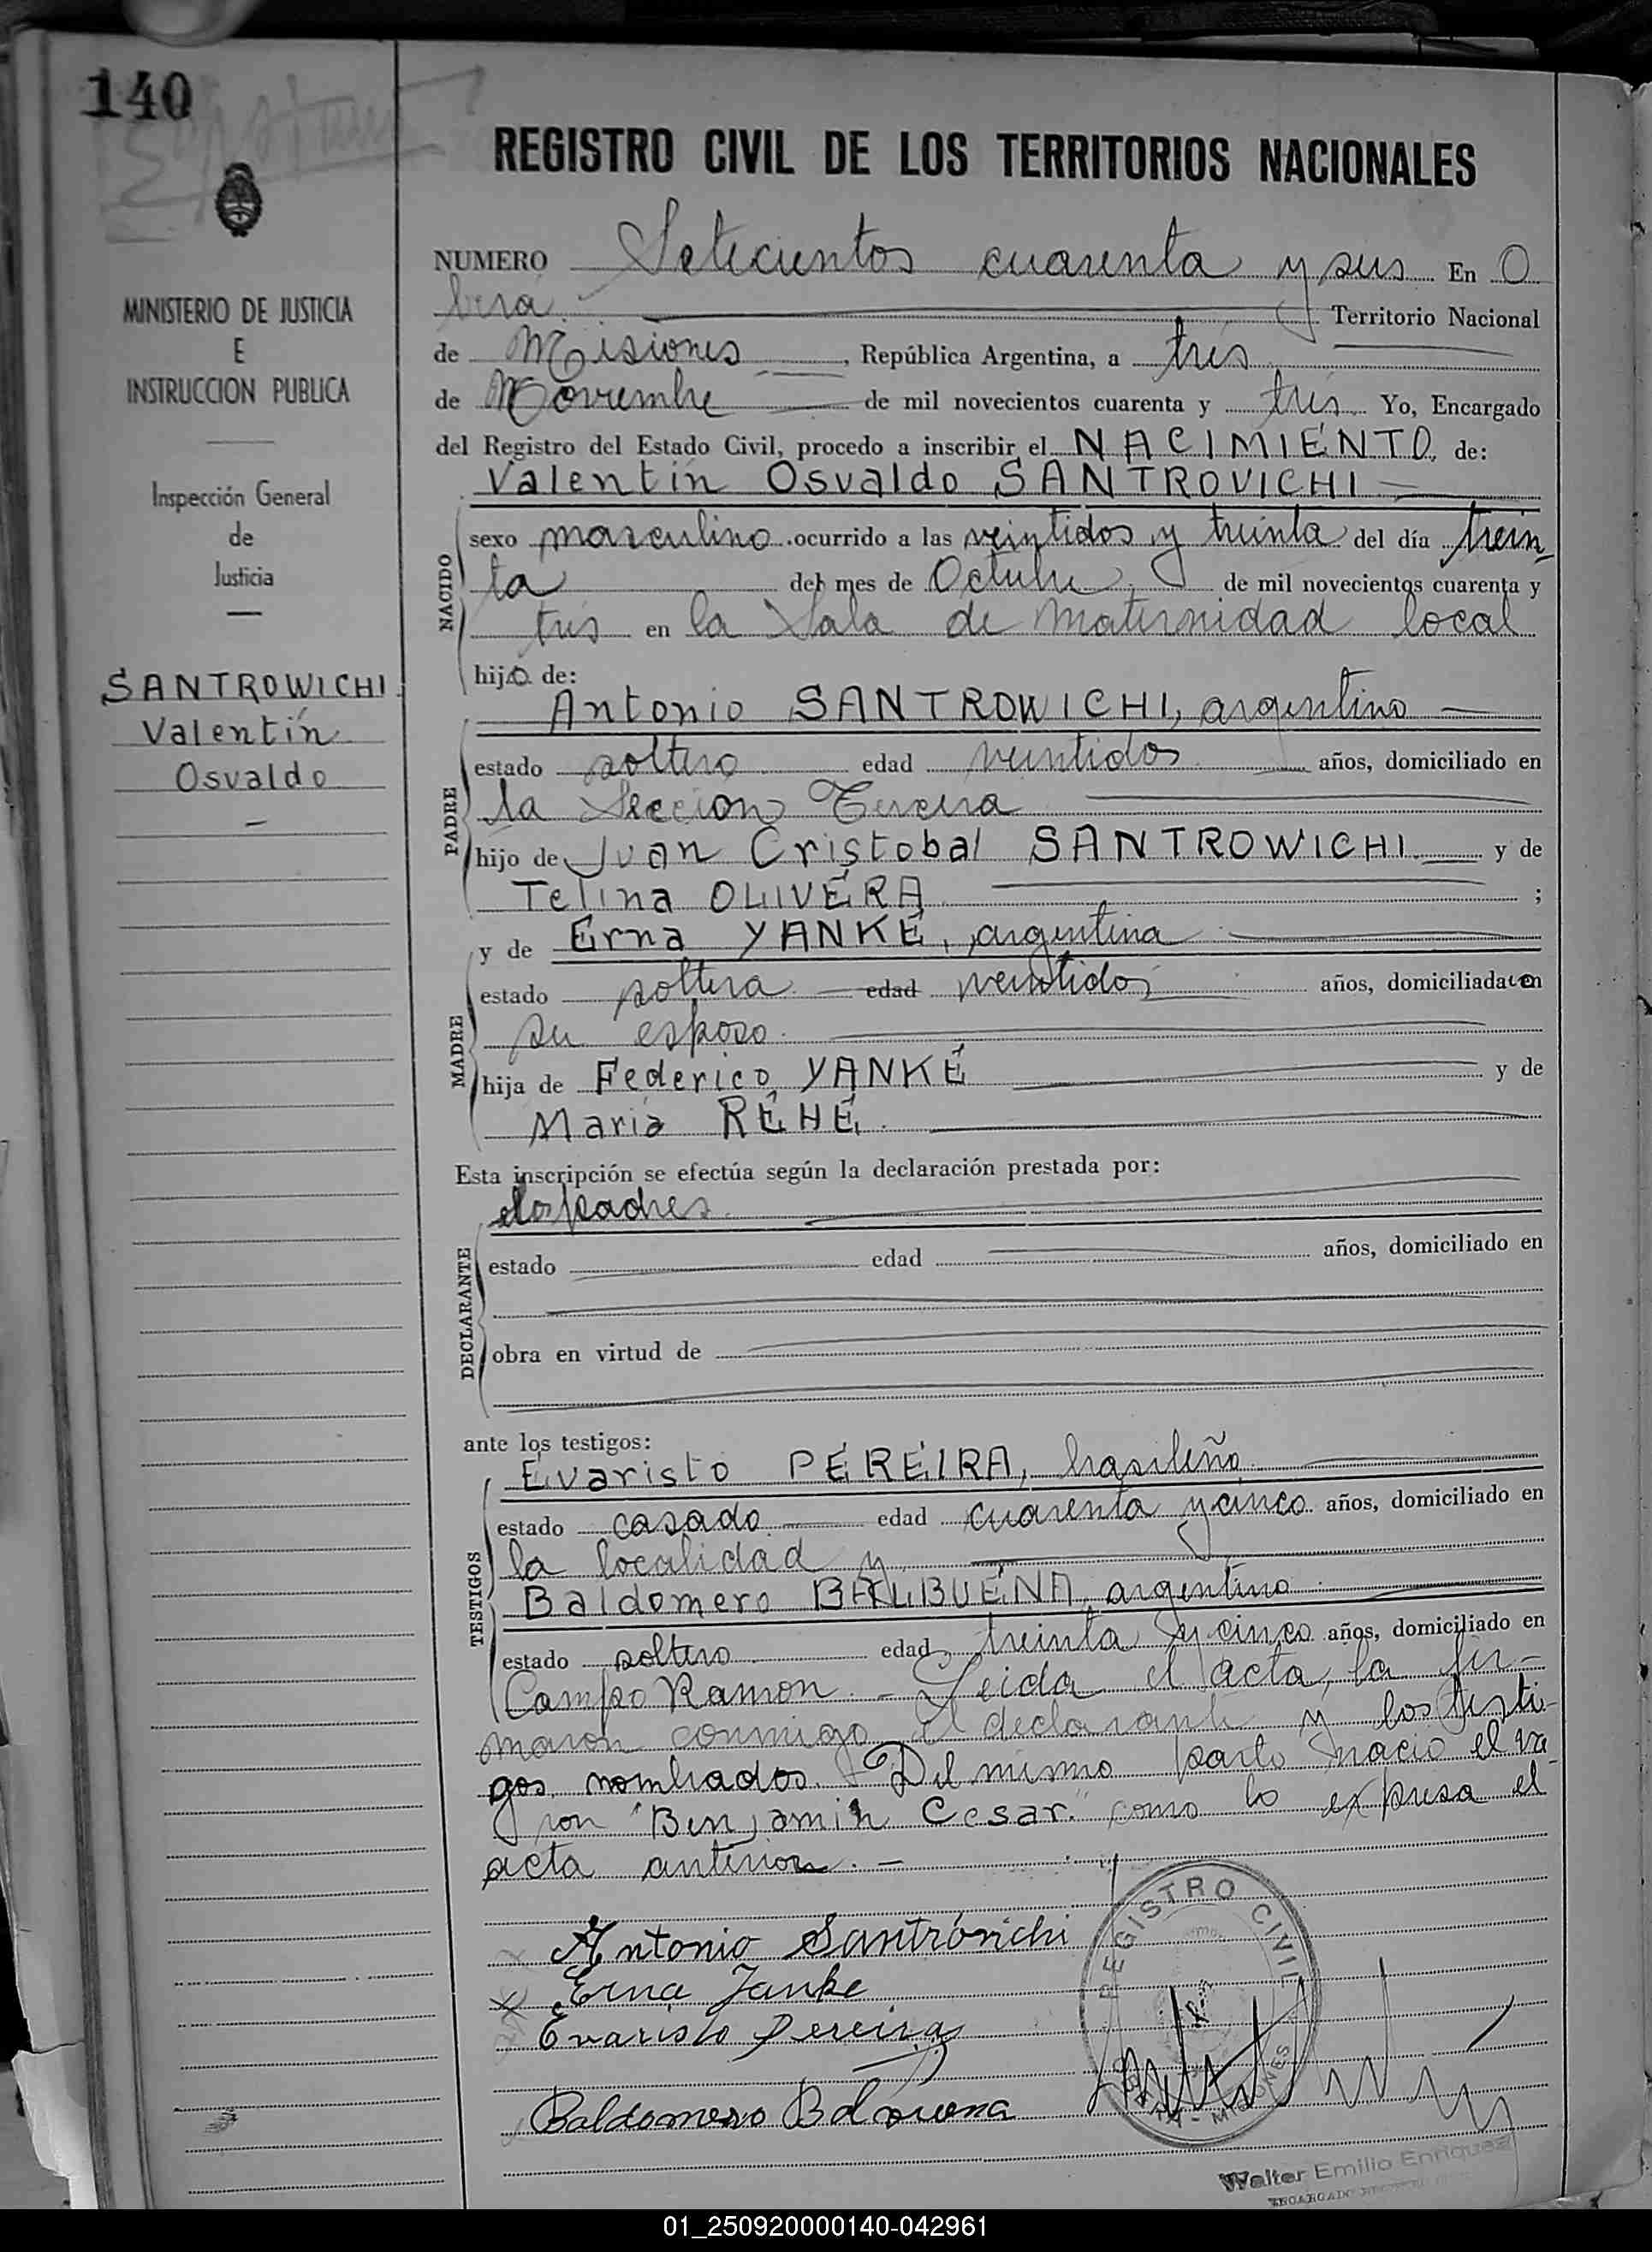 140
REGISTRO CIVIL DE LOS TERRITORIOS NACIONALES
MINISTERIO DE JUSTICIA
E
INSTRUCCION PUBLICA
Inspección General
de
Justicia
SANTROWICHI
Valentín
Osvaldo
NUMERO Setecientos cuarenta y seis En O
berá Territorio Nacional
de Misiones, República Argentina, a tres
de Noviembre de mil novecientos cuarenta y tres Yo, Encargado
del Registro del Estado Civil, procedo a inscribir el NACIMIENTO de:
Valentín Osvaldo SANTROVICHI
NACIDO
sexo masculino ocurrido a las veintidos y treinta del día trein
ta del mes de Octubre de mil novecientos cuarenta y
tres en la Sala de maternidad local
hijo de:
Antonio SANTROWICHI, argentino
PADRE
estado soltero edad veintidos años, domiciliado en
la Sección Tercera
hijo de Juan Cristobal SANTROWICHI y de
Telina OLIVERA ;
y de Erna YANKE, argentina
MADRE
estado soltera edad veintidos años, domiciliada en
su esposo
hija de Federico YANKE y de
María REHE
Esta inscripción se efectúa según la declaración prestada por:
los padres
DECLARANTE
estado edad años, domiciliado en
obra en virtud de
ante los testigos:
TESTIGOS
Evaristo PEREIRA, brasileño
estado casado edad cuarenta y cinco años, domiciliado en
la localidad y
Baldomero BALBUENA, argentino
estado soltero edad treinta y cinco años, domiciliado en
Campo Ramon. - Leida el acta, la fir-
maron conmigo el declarante y los testi-
gos nombrados. Del mismo parto nació el va-
ron "Benjamin Cesar" como lo expresa el
acta anterior. -
Antonio Santróvichi
Erna Janke
Evaristo Pereira
Baldomero Balbuena
REGISTRO CIVIL
MISIONES
Walter Emilio Enriquez
01_250920000140-042961